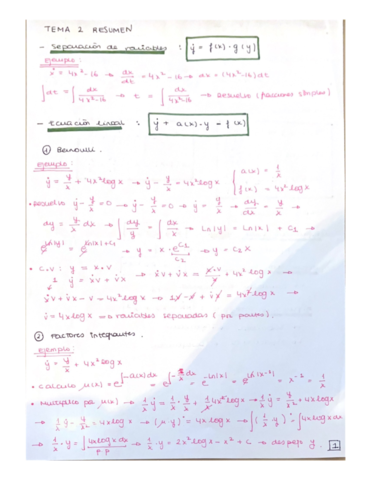 TEMA 2 RESUMEN
- separación de variables : ẏ = f(x) · g(y)
ejemplo :
ẋ = 4x² - 16 → dx/dt = 4x² - 16 → dx = (4x² - 16) dt
∫dt = ∫ dx/(4x²-16) → t = ∫ dx/(4x²-16) → Resuelvo (fracciones simples)
- ecuación lineal : ẏ + a(x) · y = f(x)
① Bernoulli.
ejemplo :
ẏ = y/x + 4x² log x → ẏ - y/x = 4x² log x { a(x) = 1/x
f(x) = 4x² log x
• Resuelvo ẏ - y/x = 0 → ẏ - y/x = 0 → ẏ = y/x → dy/dx = y/x →
dy/y = dx/x → ∫ dy/y = ∫ dx/x → Ln|y| = Ln|x| + C₁ →
→ y = x · e^C₁ → y = C₂x
• C.V : y = x · v
ẏ = ẋv + v̇x → ẋv + v̇x = x·v/x + 4x² log x →
v̇ = 4x log x → variables separadas (por partes).
② Factores Integrantes.
ejemplo :
ẏ = y/x + 4x² log x
• calculo μ(x) = e^∫-a(x)dx = e^∫-1/x dx = e^-ln(x) = e^ln(x⁻¹) = x⁻¹ = 1/x
• multiplico por μ(x) → 1/x ẏ = 1/x · y/x + 1/x 4x² log x → 1/x ẏ = y/x² + 4x log x
→ 1/x ẏ - y/x² = 4x log x → (μ · y)' = 4x log x → ∫(1/x · y)' = ∫4x log x dx
→ 1/x · y = ∫4x log x dx p.p → 1/x · y = 2x² log x - x² + C → despejo y. 1